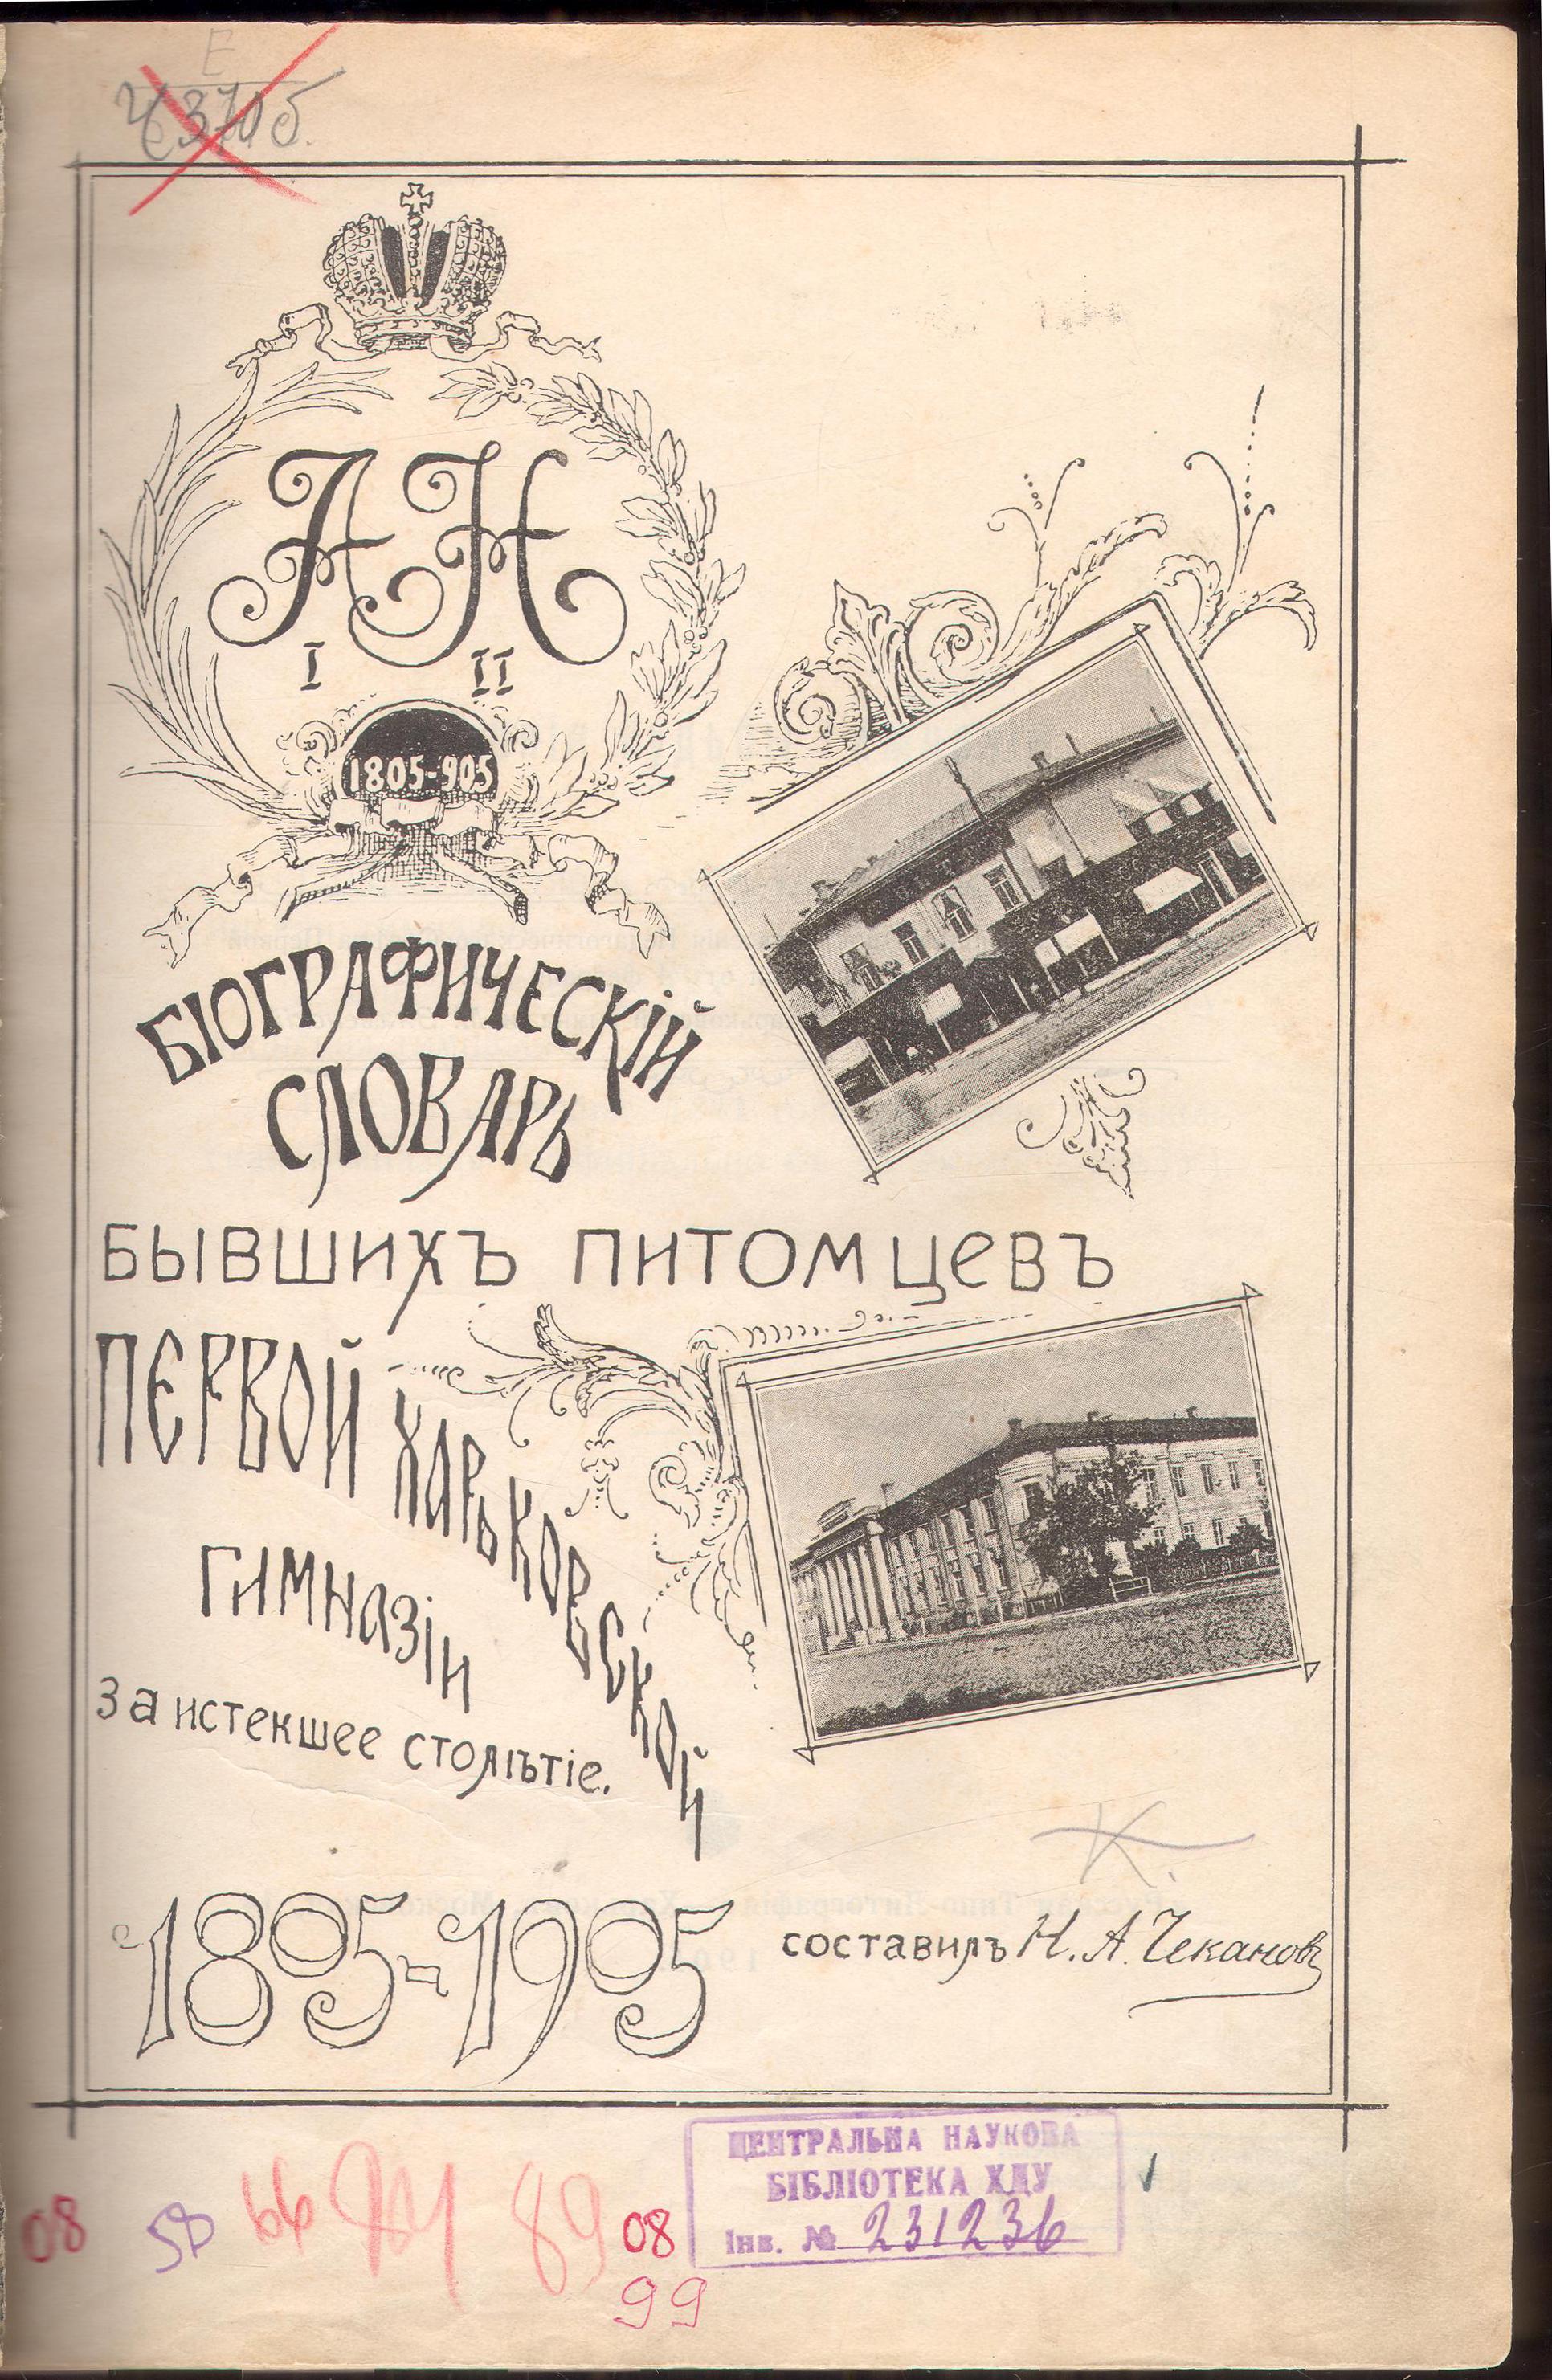 Е
Ч 3705.
А Н
I II
1805-905
БІОГРАФИЧЕСКІЙ
СЛОВАРЬ
БЫВШИХЪ ПИТОМЦЕВЪ
ПЕРВОЙ ХАРЬКОВСКОЙ
ГИМНАЗІИ
За истекшее столѣтіе.
1805-1905
составилъ Н. А. Чекановъ
К.
ЦЕНТРАЛЬНА НАУКОВА
БІБЛІОТЕКА ХДУ
Інв. № 231236
08 58 66 89 08
99